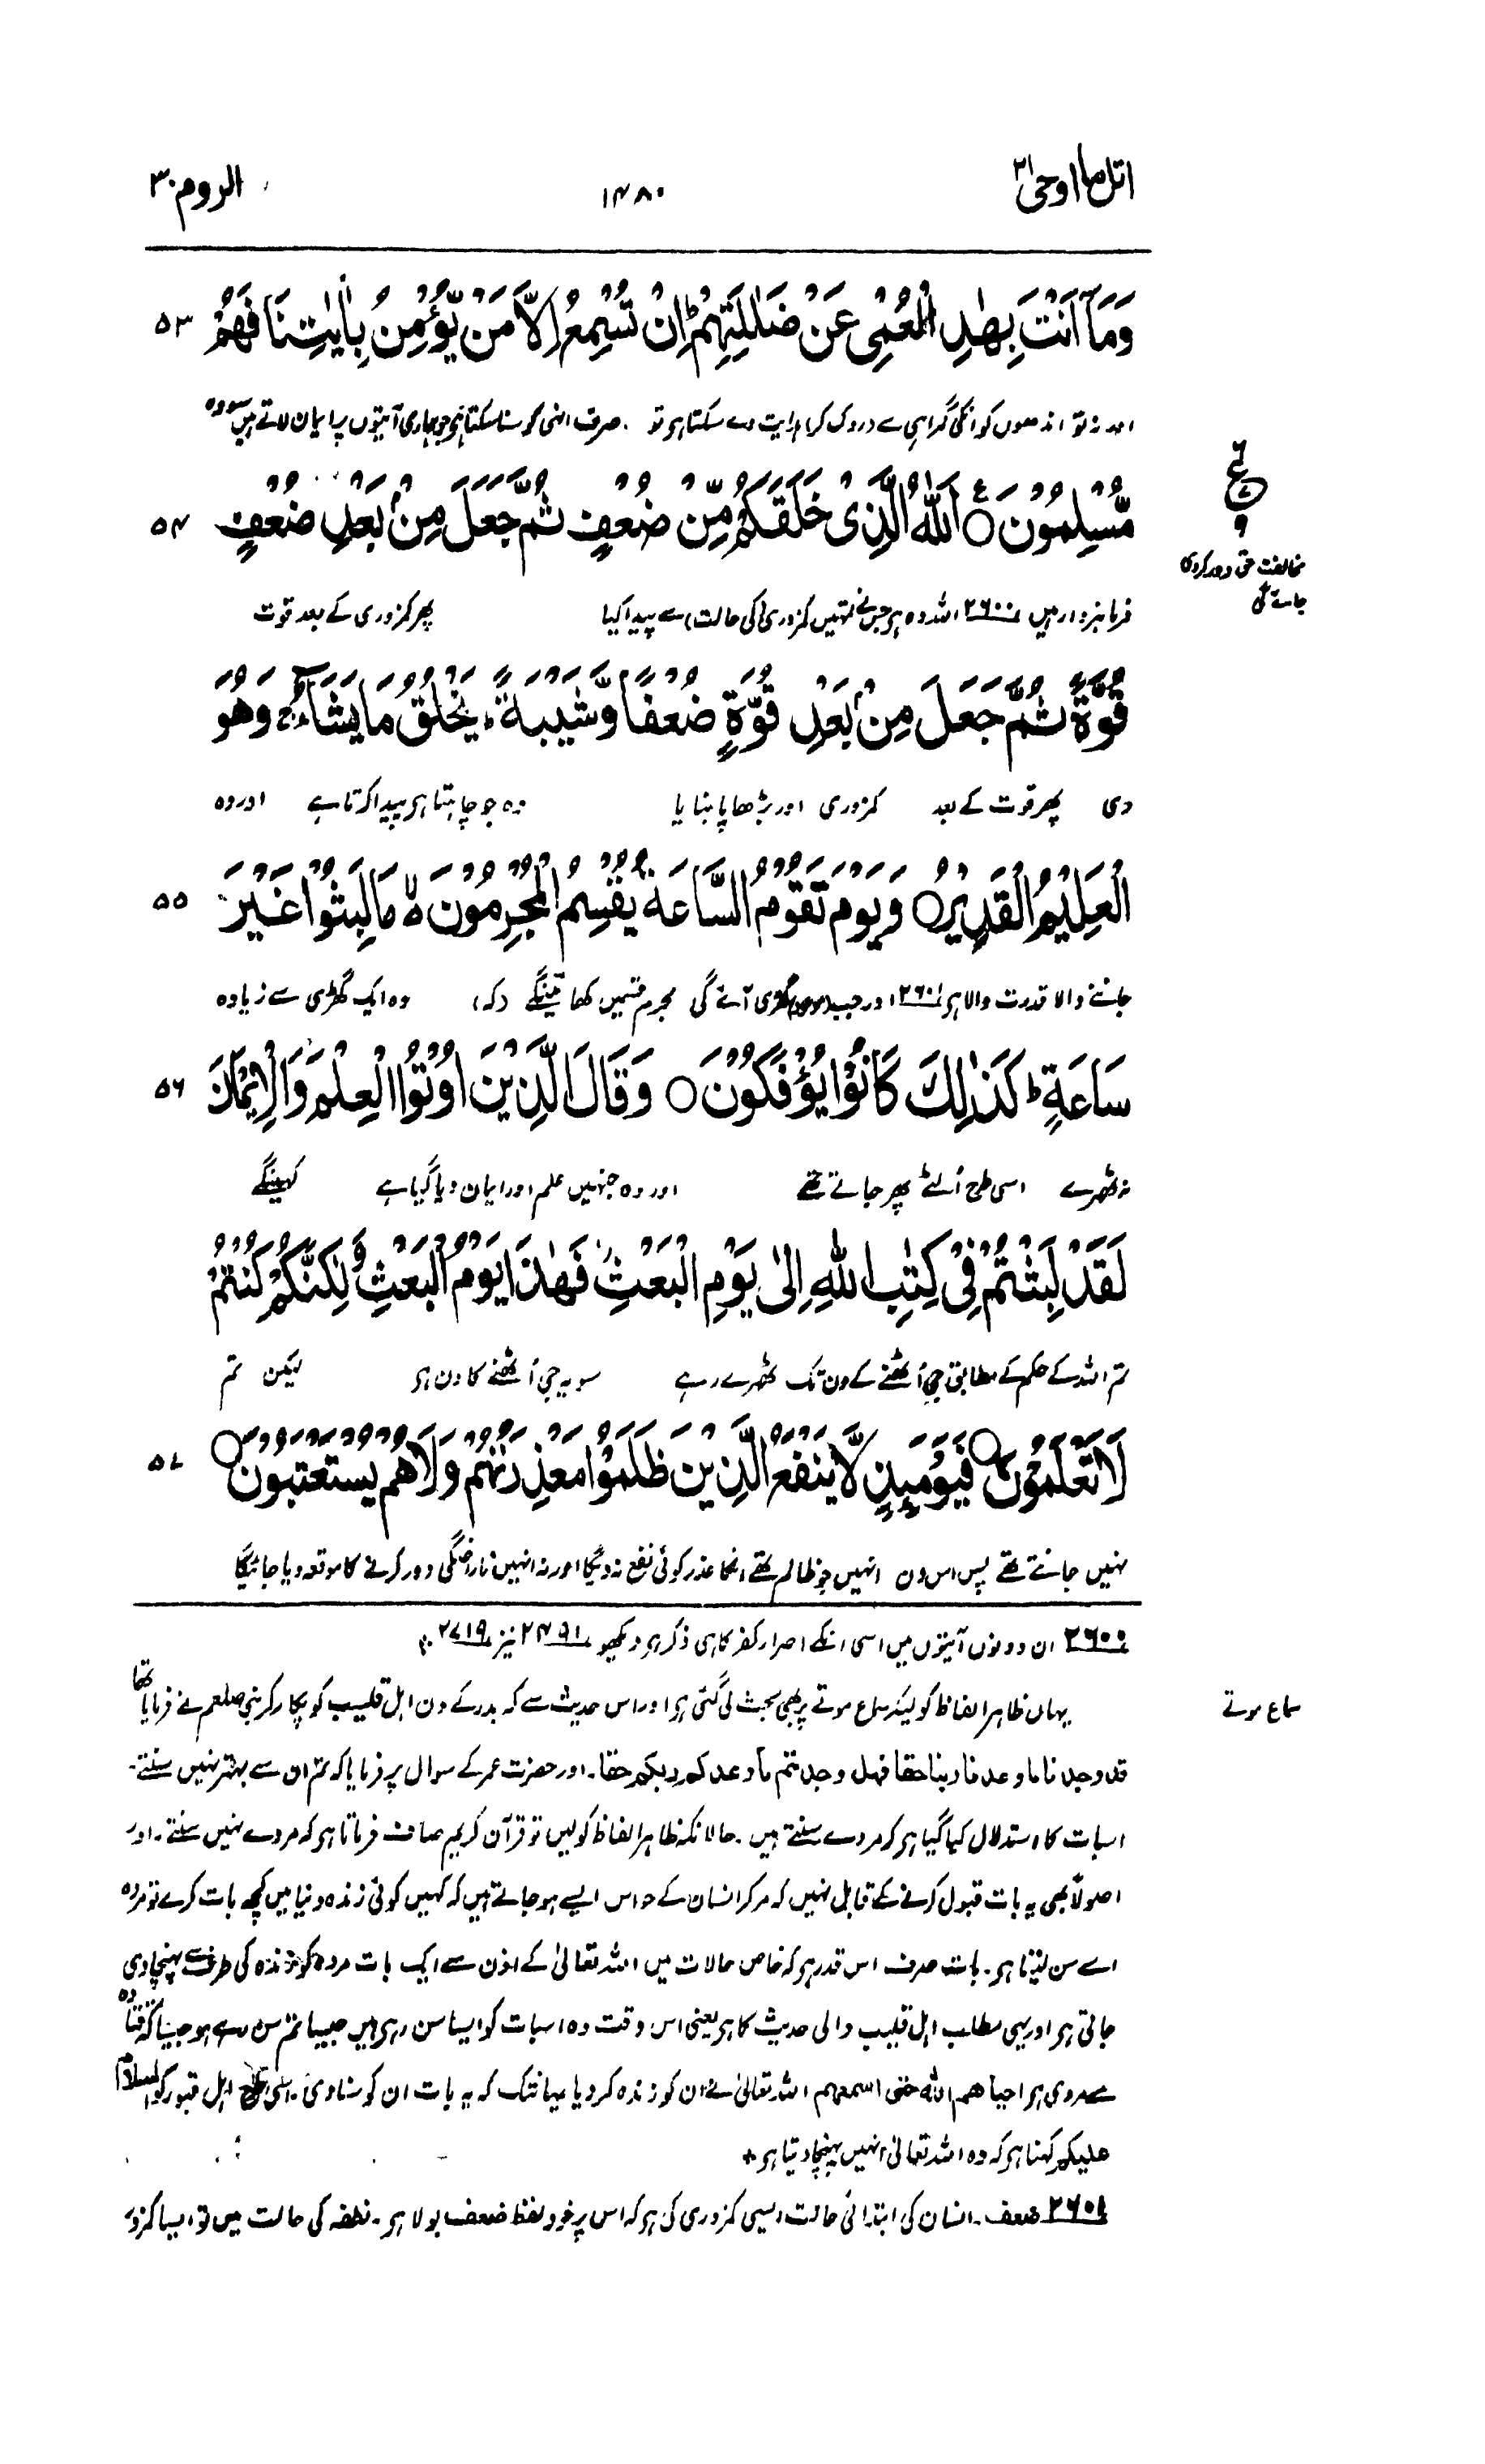 اتل ما اوحی ۲۱
۱۴۸۰
الروم ۳۰
وَمَآ اَنْتَ بِهٰدِ الْعُمْیِ عَنْ ضَلٰلَتِهِمْ ؕ اِنْ تُسْمِعُ اِلَّا مَنْ یُّؤْمِنُ بِاٰیٰتِنَا فَهُمْ ۵۳
اور نہ تو اندھوں کو انکی گمراہی سے (روک کر) ہدایت دے سکتا ہو تو صرف انہی کو سنا سکتا ہو جو ہماری آیتوں پر ایمان لاتے ہیں سو وہ
مُّسْلِمُوْنَ ○ اَللّٰهُ الَّذِیْ خَلَقَكُمْ مِّنْ ضُعْفٍ ثُمَّ جَعَلَ مِنْۢ بَعْدِ ضُعْفٍ ۵۴
فرمانبردار ہیں ۲۶۰۰ اللہ وہ ہو جس نے تمہیں کمزوری (کی حالت) سے پیدا کیا پھر کمزوری کے بعد قوت
ع
۶
۹
مخالفت حق دور کردی
جائے گی
قُوَّةً ثُمَّ جَعَلَ مِنْۢ بَعْدِ قُوَّةٍ ضُعْفًا وَّشَیْبَةً ؕ یَخْلُقُ مَا یَشَآءُ ۚ وَهُوَ
دی پھر قوت کے بعد کمزوری اور بڑھاپا بنایا وہ جو چاہتا ہو پیدا کرتا ہے اور وہ
الْعَلِیْمُ الْقَدِیْرُ ○ وَیَوْمَ تَقُوْمُ السَّاعَةُ یُقْسِمُ الْمُجْرِمُوْنَ ۙ۬ مَا لَبِثُوْا غَیْرَ ۵۵
جاننے والا قدرت والا ہو ۲۶۰۱ اور جب (موعود) گھڑی آئے گی مجرم قسمیں کھائینگے (کہ) وہ ایک گھڑی سے زیادہ
سَاعَةٍ ؕ كَذٰلِكَ كَانُوْا یُؤْفَكُوْنَ ○ وَقَالَ الَّذِیْنَ اُوْتُوا الْعِلْمَ وَالْاِیْمَانَ ۵۶
نہ ٹھہرے اسی طرح اُلٹے پھر جاتے تھے اور وہ جنہیں علم اور ایمان دیا گیا ہے کہینگے
لَقَدْ لَبِثْتُمْ فِیْ كِتٰبِ اللّٰهِ اِلٰی یَوْمِ الْبَعْثِ ؗ فَهٰذَا یَوْمُ الْبَعْثِ وَلٰكِنَّكُمْ كُنْتُمْ
تم اللہ کے حکم کے مطابق جی اُٹھنے کے دن تک ٹھہرے رہے سو یہ جی اُٹھنے کا دن ہو لیکن تم
لَا تَعْلَمُوْنَ ○ فَیَوْمَئِذٍ لَّا یَنْفَعُ الَّذِیْنَ ظَلَمُوْا مَعْذِرَتُهُمْ وَلَا هُمْ یُسْتَعْتَبُوْنَ ○ ۵۷
نہیں جانتے تھے پس اس دن انہیں جو ظالم تھے انکا عذر کوئی نفع نہ دیگا اور نہ انہیں ناراضگی دور کرنے کا موقعہ دیا جائیگا
۲۶۰۰ ان دونوں آیتوں میں اسی انکے اصرار کفر کا ہی ذکر ہو دیکھو ۲۴۹۱ نیز ۲۷۱۹
سماع موتے
یہاں ظاہر الفاظ کو لیکر سماع موتے پر بھی بحث لی گئی ہو اور اس حدیث سے کہ بدر کے دن اہل قلیب کو پکار کر نبی صلعم نے فرمایا تھا
قد وجدنا ما وعدنا ربنا حقا فهل وجدتم ما وعدكم ربكم حقا۔ اور حضرت عمر کے سوال پر فرمایا کہ تم ان سے بہتر نہیں سنتے۔
اسبات کا استدلال کیا گیا ہو کہ مردے سنتے ہیں۔ حالانکہ ظاہر الفاظ کو لیں تو قرآن کریم صاف فرماتا ہو کہ مردے نہیں سنتے۔ اور
اصولاً بھی یہ بات قبول کرنے کے قابل نہیں کہ مرکر انسان کے حواس ایسے ہو جاتے ہیں کہ کہیں کوئی زندہ دنیا میں کچھ بات کرے تو مردہ
اسے سن لیتا ہو۔ بات صرف اس قدر ہو کہ خاص حالات میں اللہ تعالیٰ کے اذن سے ایک بات مردہ کو زندہ کی طرف سے پہنچا دی
جاتی ہو اور یہی مطلب اہل قلیب والی حدیث کا ہو یعنی اس وقت وہ اسبات کو ایسا سن رہے ہیں جیسا تم سن رہے ہو جیسا کہ قتادہ
سے مروی ہو احیاهم الله حتی اسمعهم اللہ تعالیٰ نے ان کو زندہ کر دیا یہانتک کہ یہ بات ان کو سنا دی۔ اسی طرح اہل قبور کو السلام
علیکم کہنا ہو کہ وہ اللہ تعالیٰ انہیں پہنچا دیتا ہو +
۲۶۰۱ ضعف۔ انسان کی ابتدائی حالت ایسی کمزوری کی ہو کہ اس پر خود لفظ ضعف بولا ہو۔ نطفہ کی حالت میں تو ایسا کمزور